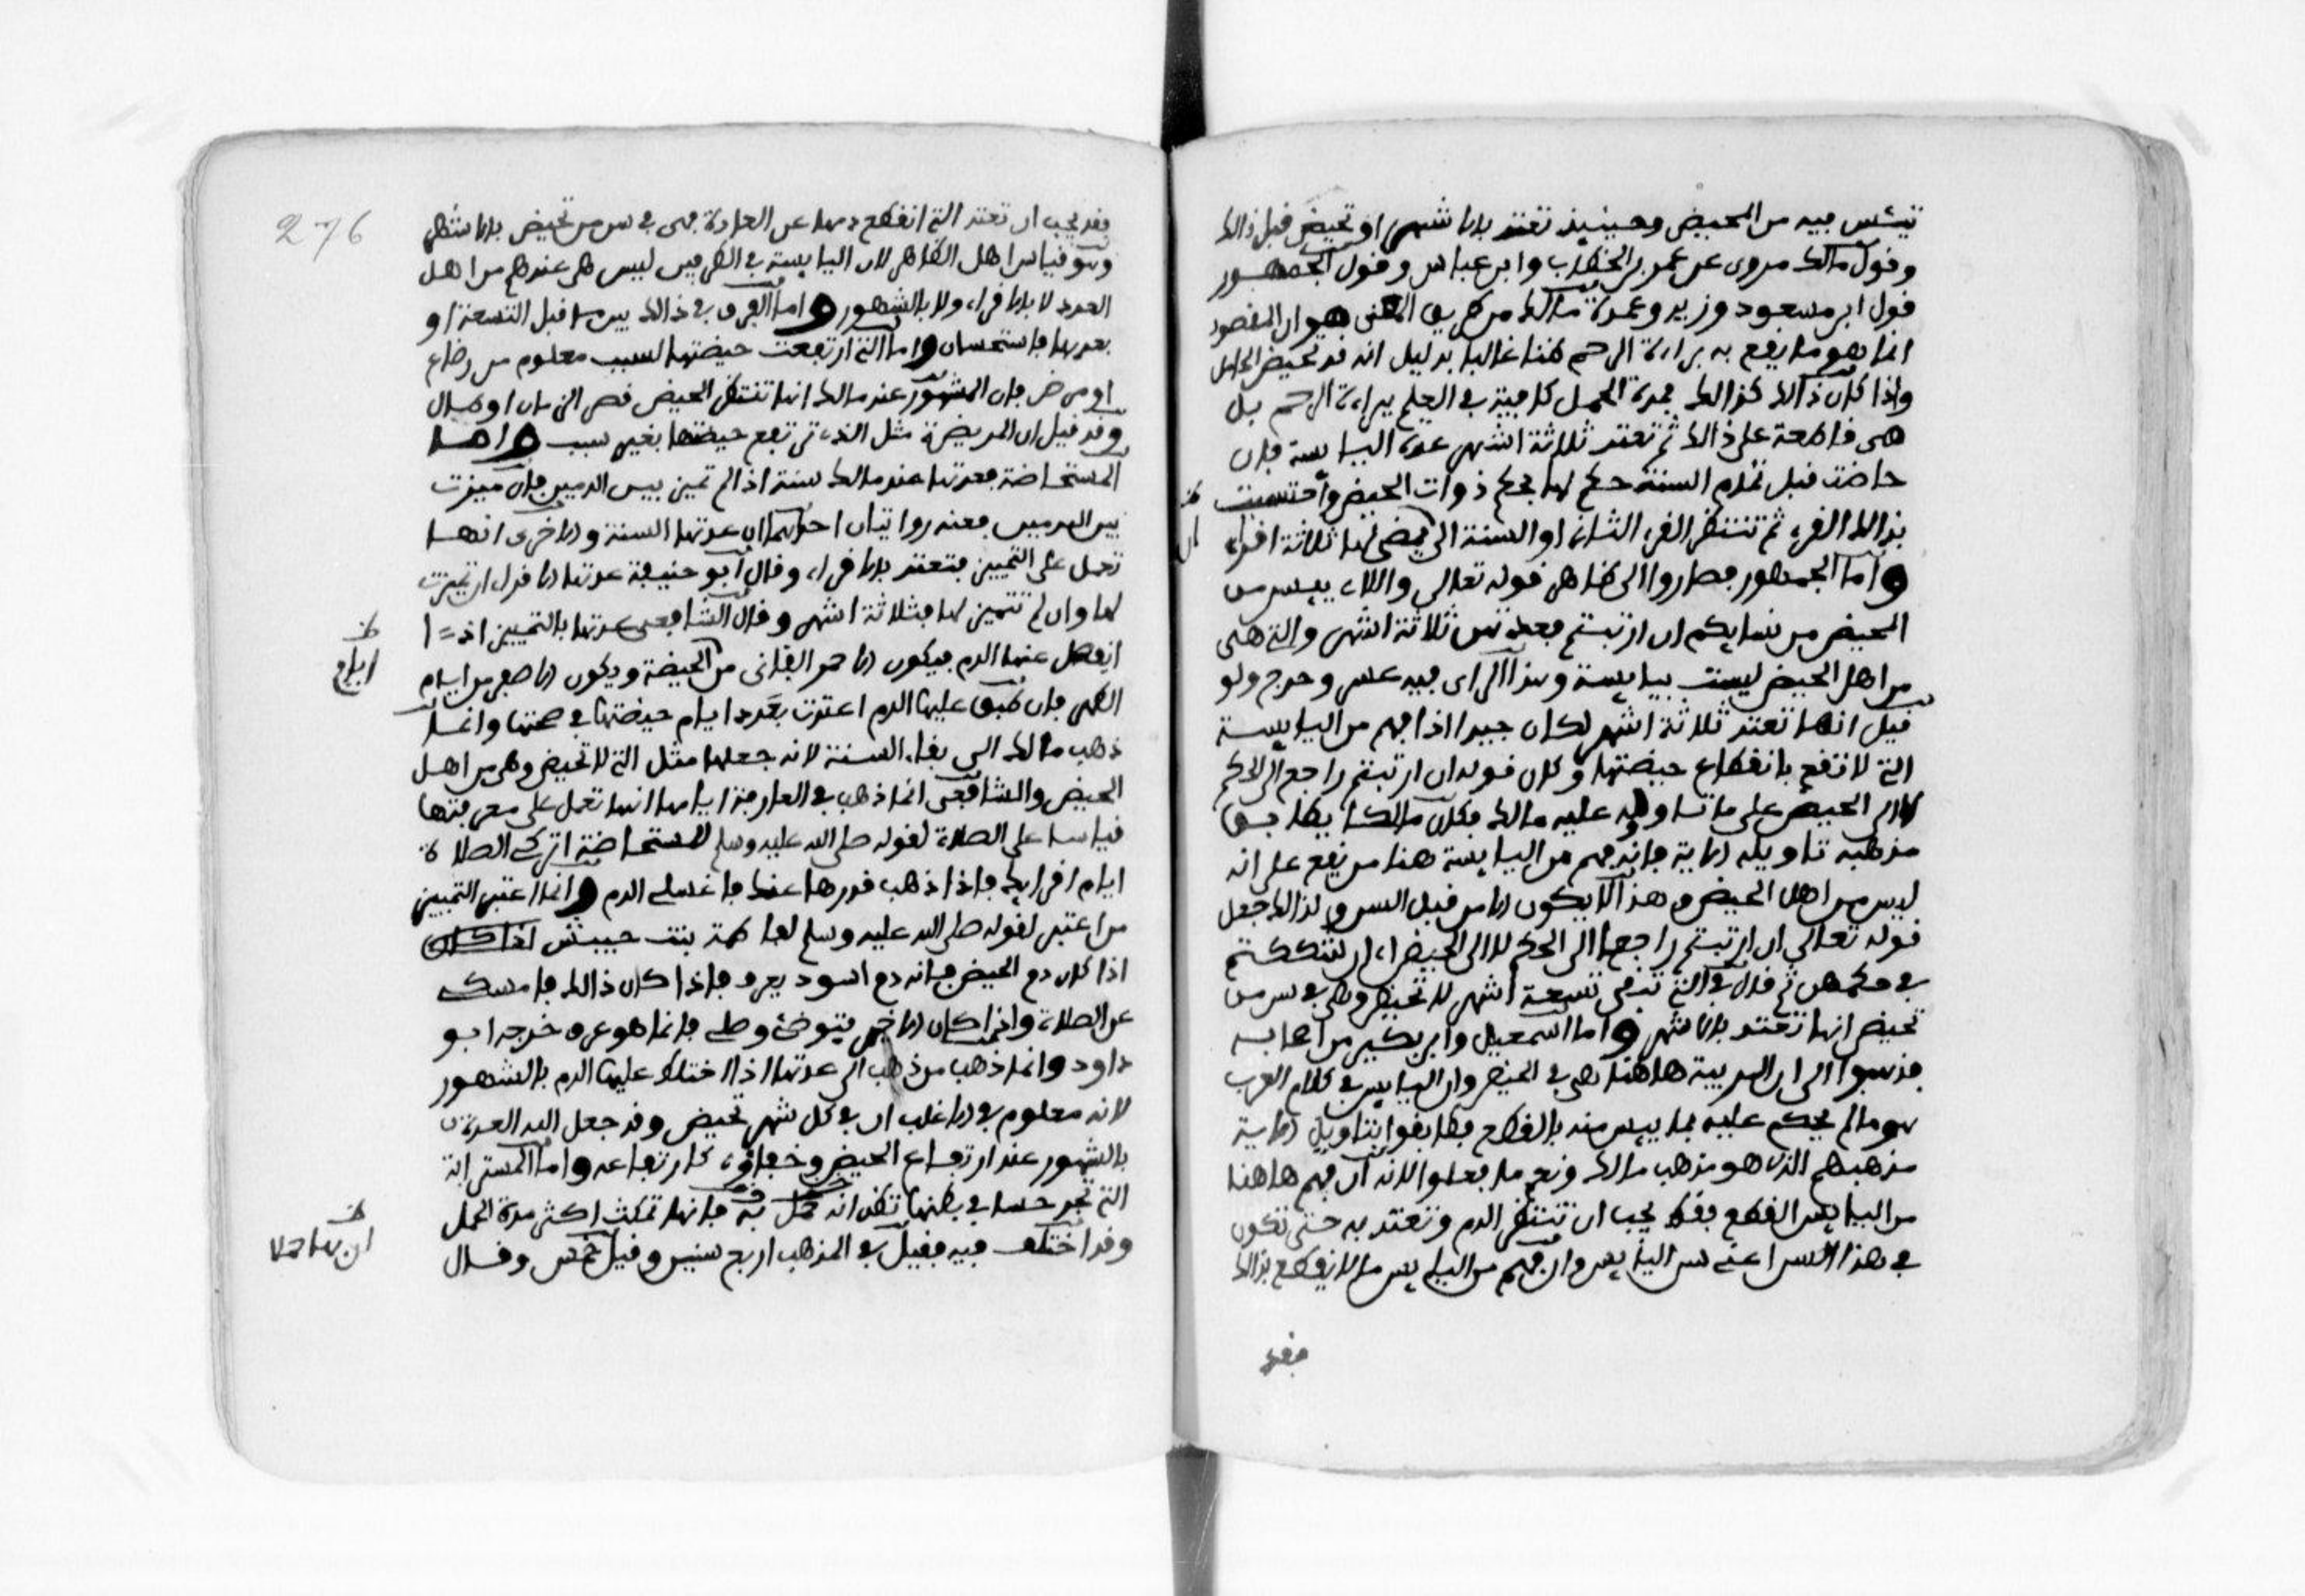 تيئس فيه من المحيض وحينيذ تعتد بالاشهر او تحيض قبل ذالك
وقول مالك مروى عن عمر بن الخطاب وابن عباس وقول الجمهور
قول ابن مسعود وزيد وعمدة مالك من طريق المعنى هو ان المقصود
انما هو ما يقع به براءة الرحم ظنا غالبا بدليل انه قد تحيض الحامل
واذا كان ذالك كذالك فمدة الحمل كافية في العلم ببراءة الرحم بل
هى قاطعة على ذالك ثم تعتد ثلاثة اشهر عدة اليايسة فان
حاضت قبل تمام السنة حكم لها بحكم ذوات الحيض واحتسبت
بذالك القرء ثم تنتظر القرء الثاني او السنة الى ان تمضى لها ثلاثة اقراء
واما الجمهور فصاروا الى ظاهر قوله تعالى واللاء ييسن من
المحيض من نسايكم ان ارتبتم فعدتهن ثلاثة اشهر والتي هى
من اهل الحيض ليست بيايسة وهذا الراى فيه عسر وحرج ولو
قيل انها تعتد ثلاثة اشهر لكان جيدا اذا فهم من اليايسة
التي لا تقع بانقطاع حيضتها وكان قوله ان ارتبتم راجع الى الحكم
لا الى الحيض على ما تاوله عليه مالك فكان مالكا يطابق
مذهبه تاويله الاية فانه فهم من اليايسة هنا من تقع على انه
ليس من اهل الحيض وهذا لا يكون الا من قبل السن ولذالك جعل
قوله تعالى ان ارتبتم راجعا الى الحكم لا الى الحيض اى ان شككتم
في حكمهن ثم قال في التي تبقى تسعة اشهر لا تحيض وهى في سن من
تحيض انها تعتد بالاشهر واما اسمعيل وابن بكير من اصحابه
فذهبوا الى ان الريبة هاهنا هى في الحيض وان اليايس في كلام العرب
هو ما لم يحكم عليه بما ييس منه بالقطع فطابقوا بتاويل الاية
مذهبهم الذى هو مذهب مالك ونعم ما فعلوا لانه ان فهم هاهنا
من اليايس القطع فقد يجب ان تنتظر الدم وتعتد به حتى تكون
في هذا السن اعنى سن اليايس وان فهم من اليايس ما لا يقطع بذالك
فقد
276
فقد يجب ان تعتد التي انقطع دمها عن العادة وهى في سن من تحيض بالاشهر
وهو قياس اهل الظاهر لان اليايسة في الطرفين ليس هى عندهم من اهل
العدد لا بالاقراء ولا بالشهور واما الفرق في ذالك بين ما قبل التسعة او
بعدها فاستحسان واما التي ارتفعت حيضتها لسبب معلوم من رضاع
او مرض فان المشهور عند مالك انها تنتظر الحيض قصر الزمان او طال
وقد قيل ان المريضة مثل التي ترتفع حيضتها بغير سبب واما
المستحاضة فعدتها عند مالك سنة اذا لم تميز بين الدمين فان ميزت
بين الدمين فعنه روايتان احداهما ان عدتها السنة والاخرى انها
تعمل على التمييز فتعتد بالاقراء وقال ابو حنيفة عدتها الاقراء ان تميزت
لها وان لم تتميز لها فثلاثة اشهر وقال الشافعى عدتها بالتمييز اذا
انفصل عنها الدم فيكون الاحمر القانى من الحيضة ويكون الاصفر من ايام
الطهر فان طبق عليها الدم اعتدت بعدد ايام حيضتها في صحتها وانما
ذهب مالك الى بقاء السنة لانه جعلها مثل التي لا تحيض وهى من اهل
الحيض والشافعى انما ذهب في العارفة ايامها انها تعمل على معرفتها
قياسا على الصلاة لقوله صلى الله عليه وسلم للمستحاضة اتركى الصلاة
ايام اقرايك فاذا ذهب قدرها عنك فاغسلى الدم وانما اعتبر التمييز
من اعتبر لقوله صلى الله عليه وسلم لفاطمة بنت حبيش اذا كان
اذا كان دم الحيض فانه دم اسود يعرف فاذا كان ذالك فامسكى
عن الصلاة واذا كان الاخر فتوضئ وصلى فانما هو عرق خرجه ابو
داود وانما ذهب من ذهب الى عدتها اذا اختلط عليها الدم بالشهور
لانه معلوم في الاغلب ان في كل شهر تحيض وقد جعل الله العدة
بالشهور عند ارتفاع الحيض وخفاؤه كارتفاعه واما المسترابة
التي تجد حسا في بطنها تظن انه حمل به فانها تمكث اكثر مدة الحمل
وقد اختلف فيه فقيل في المذهب اربع سنين وقيل خمس وقال
ايام
ان بها حملا